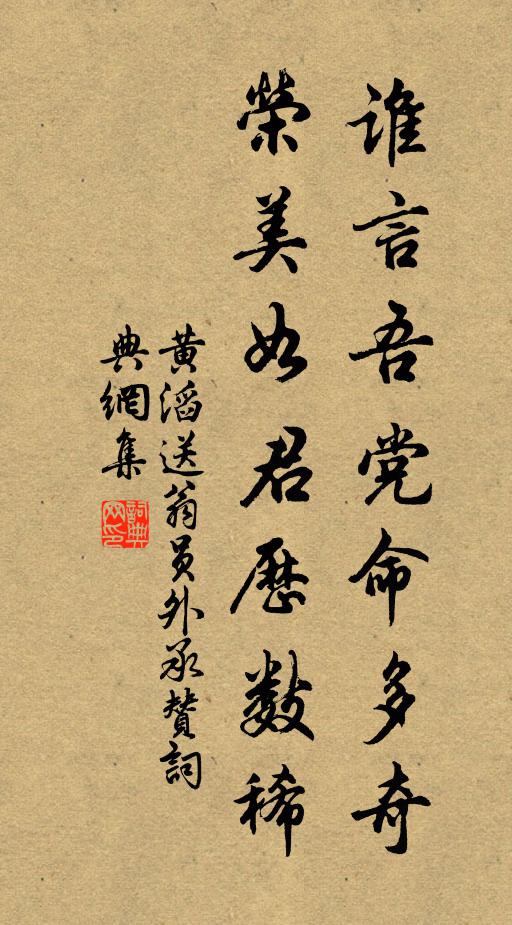 谁言吾党命多奇
荣美如君历数稀
黄滔送翁员外承赞词
典網集
詞典网印